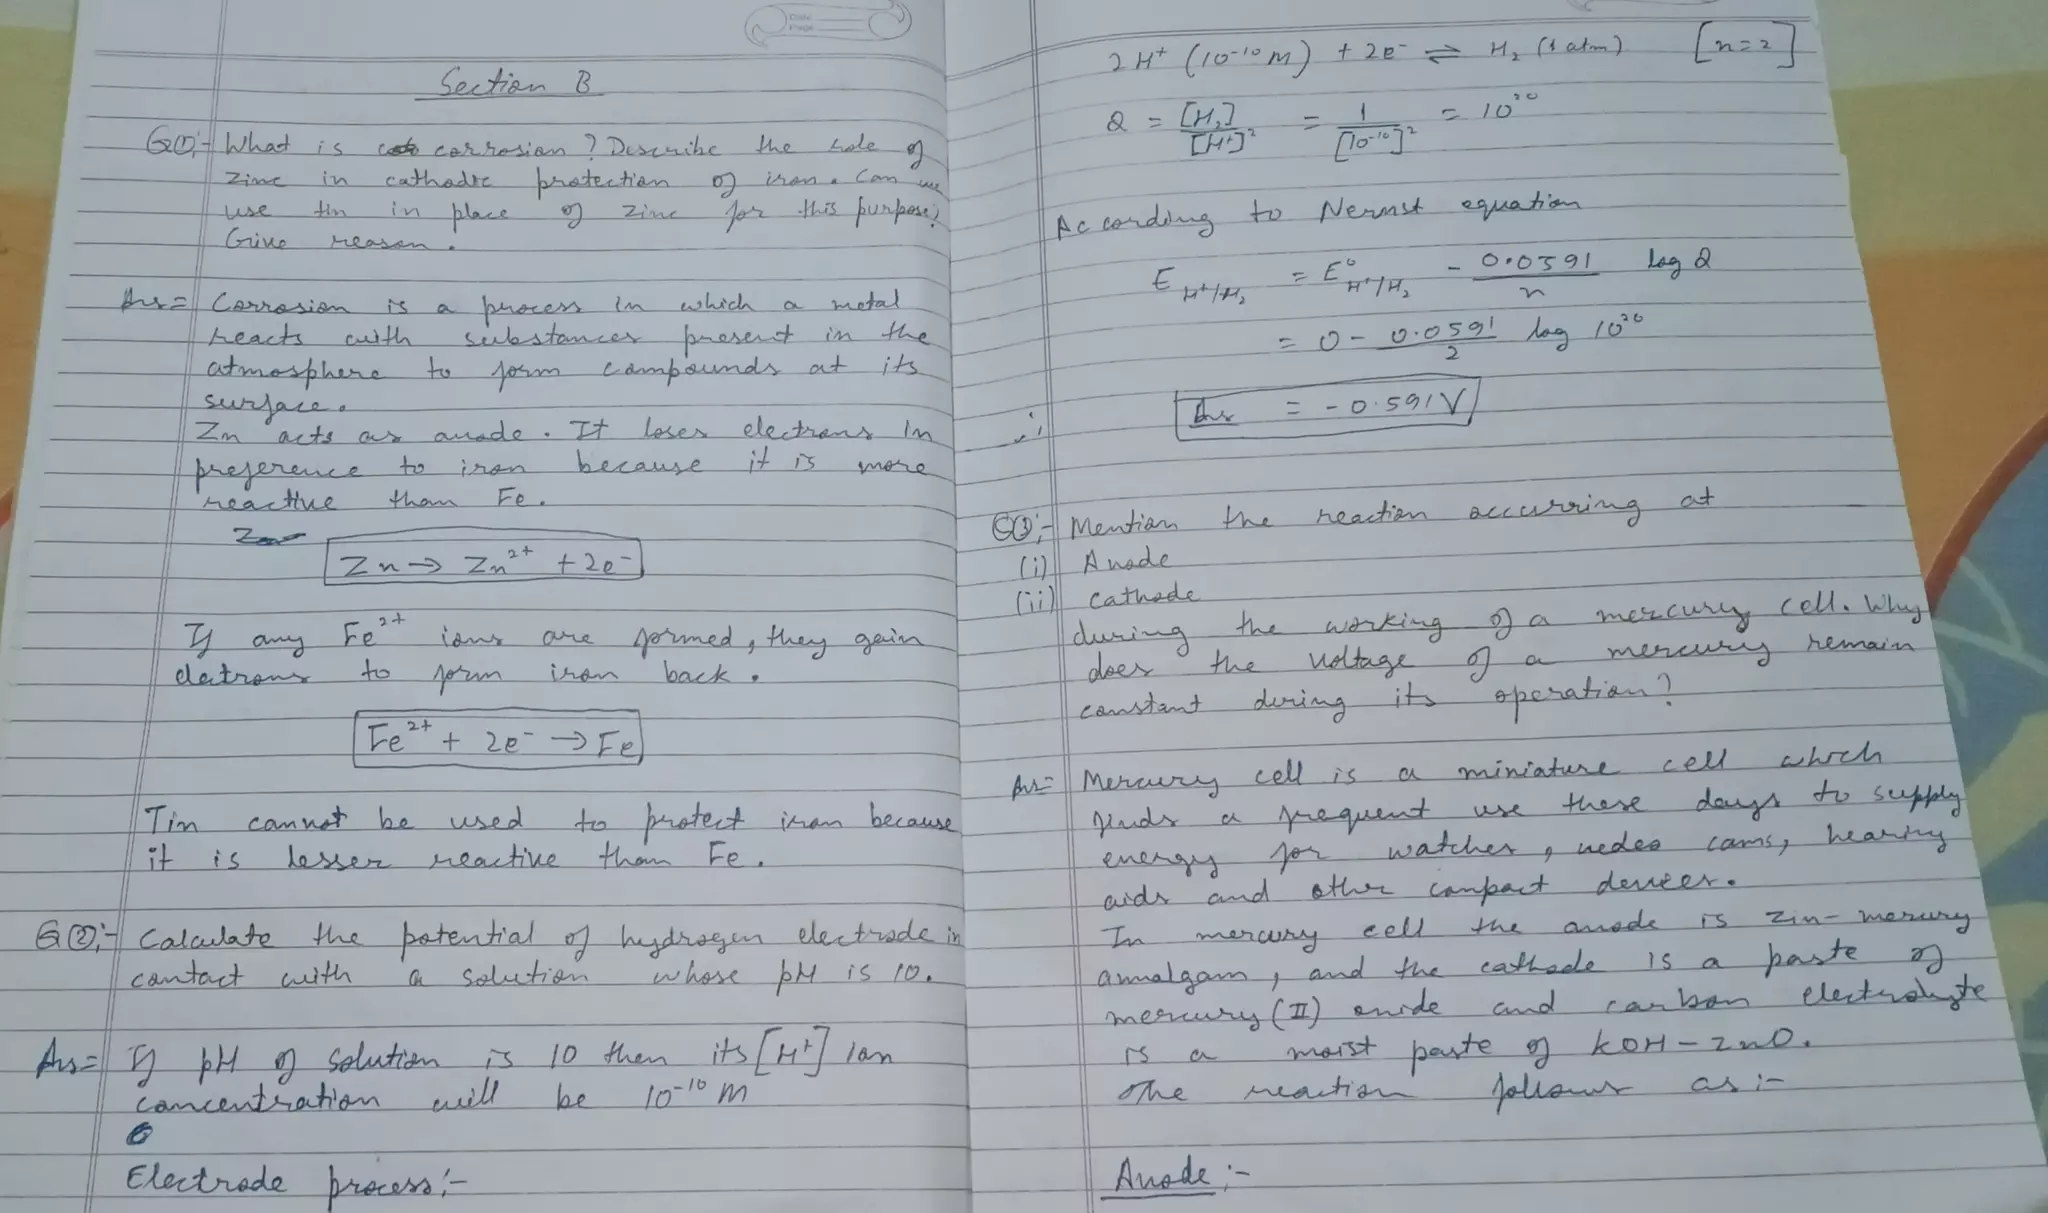 Section B
Q①:- What is corrosion? Describe the role of
zinc in cathodic protection of iron. Can we
use tin in place of zinc for this purpose?
Give reason.
Ans= Corrosion is a process in which a metal
reacts with substances present in the
atmosphere to form compounds at its
surface.
Zn acts as anode. It loses electrons in
preference to iron because it is more
reactive than Fe.
Zn → Zn²⁺ + 2e⁻
If any Fe²⁺ ions are formed, they gain
eletrons to form iron back.
Fe²⁺ + 2e⁻ → Fe
Tin cannot be used to protect iron because
it is lesser reactive than Fe.
Q②:- Calculate the potential of hydrogen electrode in
contact with a solution whose pH is 10.
Ans= If pH of solution is 10 then its [H⁺] ion
concentration will be 10⁻¹⁰ M
Electrode process:-
2H⁺ (10⁻¹⁰ M) + 2e⁻ ⇌ H₂ (1 atm) [n=2]
Q = [H₂]/[H⁺]² = 1/[10⁻¹⁰]² = 10²⁰
According to Nernst equation
E H⁺/H₂ = E° H⁺/H₂ - 0.0591/n log Q
= 0 - 0.0591/2 log 10²⁰
Ans = -0.591V
Q③:- Mention the reaction occurring at
(i) Anode
(ii) Cathode
during the working of a mercury cell. Why
does the voltage of a mercury remain
constant during its operation?
Ans= Mercury cell is a miniature cell which
finds a frequent use these days to supply
energy for watches, video cams, hearing
aids and other compact devices.
In mercury cell the anode is zin-mercury
amalgam, and the cathode is a paste of
mercury (II) oxide and carbon electrolyte
is a moist paste of KOH-ZnO.
The reaction follows as:-
Anode:-